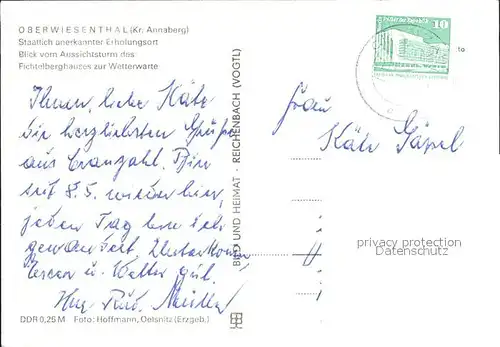 OBERWIESENTHAL (Kr. Annaberg)
Staatlich anerkannter Erholungsort
Blick vom Aussichtsturm des
Fichtelberghauses zur Wetterwarte
Ihnen, liebe Käte
die herzlichsten Grüße
aus Cranzahl. Bin
seit 8.5. wieder hier,
jeden Tag
Unterkom
Essen u. Wetter gut.
Ihre
DDR 0,25 M Foto: Hoffmann, Oelsnitz (Erzgeb.)
BILD UND HEIMAT · REICHENBACH (VOGTL)
10
Frau
Käte
privacy protection
Datenschutz